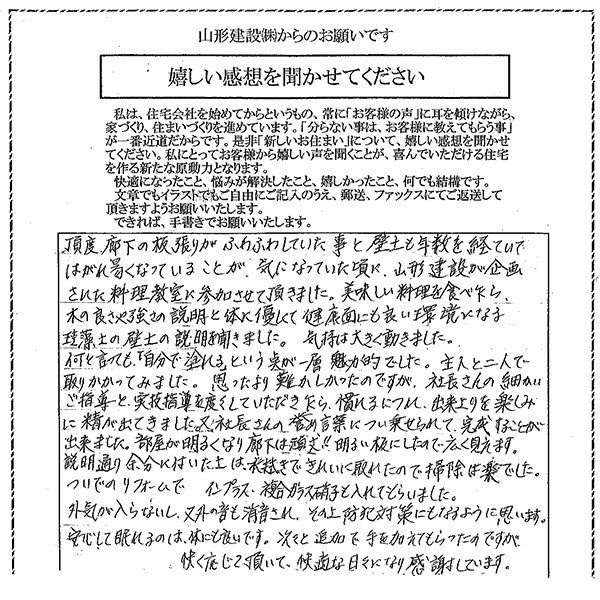 山形建設㈱からのお願いです
嬉しい感想を聞かせてください
私は、住宅会社を始めてからというもの、常に「お客様の声」に耳を傾けながら、
家づくり、住まいづくりを進めています。「分らない事は、お客様に教えてもらう事」
が一番近道だからです。是非「新しいお住まい」について、嬉しい感想を聞かせ
てください。私にとってお客様から嬉しい声を聞くことが、喜んでいただける住宅
を作る新たな原動力となります。
快適になったこと、悩みが解決したこと、嬉しかったこと、何でも結構です。
文章でもイラストでもご自由にご記入のうえ、郵送、ファックスにてご返送して
頂きますようお願いいたします。
できれば、手書きでお願いいたします。
頂度、廊下の板張りが ふわふわしていた事と壁土も年数を経ていて
はがれ易くなっていることが、気になっていた頃に、山形建設が企画
された料理教室に参加させて頂きました。美味しい料理を食べ乍ら、
木の良さや強さの説明と体に優しくて健康面にも良い環境になる
珪藻土の壁土の説明を聞きました。気持は大きく動きました。
何と言っても、「自分で塗れる」という点が一層魅力的でした。主人と二人で
取りかかってみました。思ったより難かしかったのですが、社長さんの細かい
ご指導と、実技指導を度々していただき乍ら、慣れるにつれ、出来上りを楽しみ
に精が出てきました。又、社長さんの誉め言葉につい乗せられて、完成することが
出来ました。部屋が明るくなり廊下は頑丈!! 明るい板にしたので広く見えます。
説明通り余分に付いた土は水拭きできれいに取れたので掃除は楽でした。
ついでのリフォームで インプラス・複合ガラス硝子も入れてもらいました。
外気が入らないし、又外の音も消音され、その上防犯対策にもなるように思います。
安心して眠れるのは、体にも良いです。次々と追加で手を加えてもらったのですが
快く応じて頂いて、快適な日々になり感謝しています。